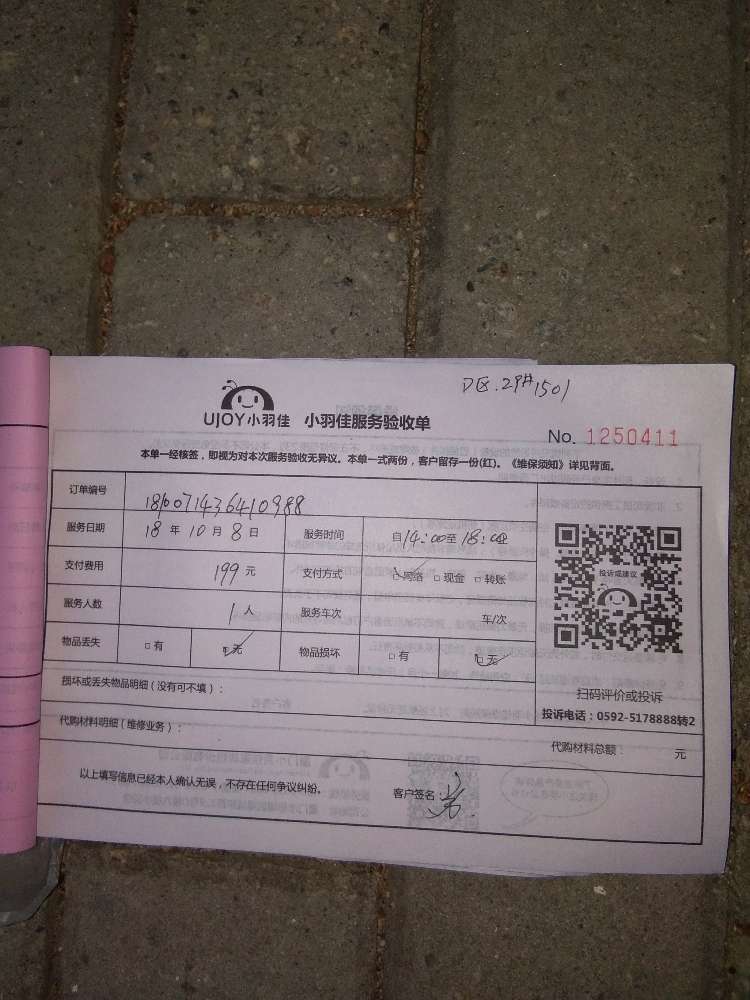 D区.29#1501
UJOY小羽佳 小羽佳服务验收单
No. 1250411
本单一经核签，即视为对本次服务验收无异议。本单一式两份，客户留存一份(红)。《维保须知》详见背面。
订单编号 1810071436410988
服务日期 18 年 10 月 8 日 服务时间 自14:00至18:00
支付费用 199 元 支付方式 ☑网络 □现金 □转账
服务人数 1 人 服务车次 车/次
物品丢失 □有 ☑无 物品损坏 □有 ☑无
投诉或建议
扫码评价或投诉
投诉电话：0592-5178888转2
损坏或丢失物品明细（没有可不填）：
代购材料明细（维修业务）： 代购材料总额： 元
以上填写信息已经本人确认无误，不存在任何争议纠纷。 客户签名：